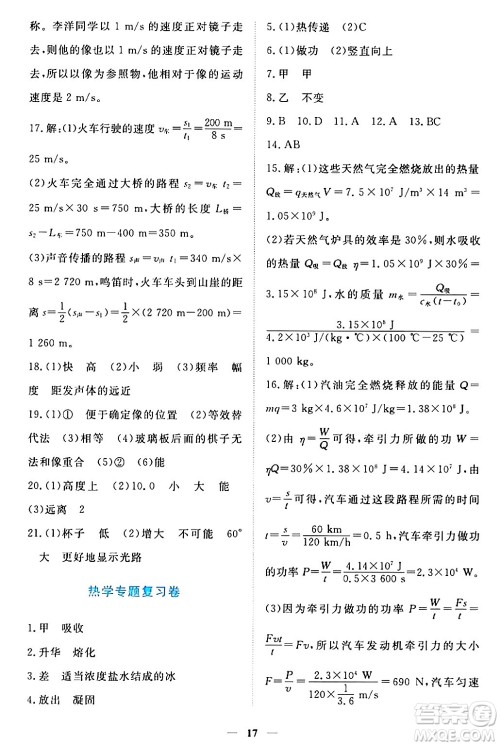 称。李洋同学以 1 m/s 的速度正对镜子走
去，则他的像也以 1 m/s 的速度正对他走
去，所以以像为参照物，他相对于像的运动
速度是 2 m/s。
17.解:(1)火车行驶的速度 v车=s₁/t₁=200 m/8 s=
25 m/s。
(2)火车完全通过大桥的路程 s₂=v车 t₂=
25 m/s×30 s=750 m，大桥的长度 L桥=
s₂-L车=750 m-200 m=550 m。
(3)声音传播的路程 s声=v声 t₁=340 m/s×
8 s=2 720 m，鸣笛时，火车车头到山崖的距
离 s=1/2(s声-s₁)=1/2×(2 720 m-200 m)=
1 260 m。
18.(1)快 高 (2)小 弱 (3)频率 幅
度 距发声体的远近
19.(1)① 便于确定像的位置 (2)等效替
代法 (3)相同 (4)玻璃板后面的棋子无
法和像重合 (5)② (6)能
20.(1)高度上 (2)10.0 小 大 能
(3)远离 2
21.(1)杯子 低 (2)增大 不可能 60°
大 更好地显示光路
热学专题复习卷
1.甲 吸收
2.升华 熔化
3.差 适当浓度盐水结成的冰
4.放出 凝固
5.(1)热传递 (2)
6.(1)做功 (2)竖直向上
7.甲 甲
8.乙 不变
9.B 10.D 11.A 12.A 13.BC
14.AB
15.解:(1)这些天然气完全燃烧放出的热量
Q放=q天然气V=3.5×10⁷ J/m³×30 m³=
1.05×10⁹ J。
(2)若天然气炉具的有效效率为 30%，则水吸收
的热量 Q吸=Q放 η=1.05×10⁹ J×30%=
3.15×10⁸ J，水的质量 m水=Q吸/c水(t-t₀)=
3.15×10⁸ J/4.2×10³ J/(kg·℃)×(95 ℃-20 ℃)=
1 000 kg。
16.解:(1)汽油完全燃烧释放的能量 Q=
mq=3 kg×4.6×10⁷ J/kg=1.38×10⁸ J。
(2)由 η=W/Q 可得，牵引力做功 W=Qη=
1.38×10⁸ J×30%=4.14×10⁷ J，
由 v=s/t 可得，汽车通过这段路程所用的时间
t=s/v=60 km/120 km/h=0.5 h，汽车牵引力做功
的功率 P=W/t=4.14×10⁷ J/0.5×3 600 s=2.3×10⁴ W。
(3)因为牵引力的功率 P=W/t=Fs/t=
Fvt/t=Fv，所以，汽车受到的牵引力
F=P/v=690 N，汽车匀速
17